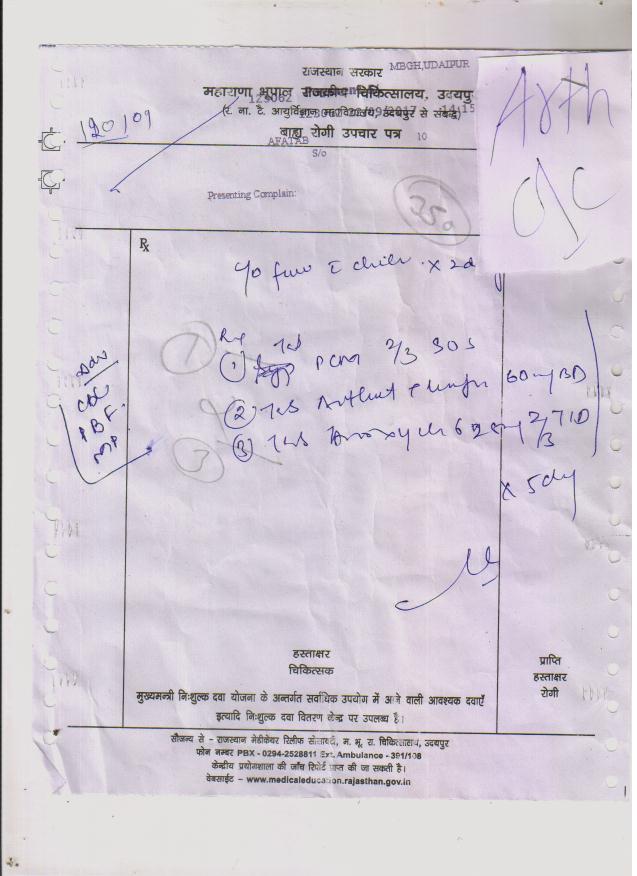 MBGH, UDAIPUR
राजस्थान सरकार
महाराणा भूपाल राजकीय चिकित्सालय, उदयपु
123062
14:15
(र. ना. टै. आयुर्विज्ञान महाविद्यालय, उदयपुर से संबद्ध)
120/09
बाह्य रोगी उपचार पत्र 10
AFATAB
S/o
Arth
c/c
Presenting Complain:
350
Rx
c/o fever c chills x 2d
Rx
① Tab PCM 2/3 SOS
②
③ Tab
2/3 TID
x 5day
Adv
CBC
PBF
MP
हस्ताक्षर
चिकित्सक
प्राप्ति
हस्ताक्षर
रोगी
मुख्यमन्त्री निःशुल्क दवा योजना के अन्तर्गत सर्वाधिक उपयोग में आने वाली आवश्यक दवाएँ
इत्यादि निःशुल्क दवा वितरण केन्द्र पर उपलब्ध है।
सौजन्य से - राजस्थान मेडीकेयर रिलीफ सोसायटी, म. भू. रा. चिकित्सालय, उदयपुर
फोन नम्बर PBX - 0294-2528811 Ext. Ambulance - 391/108
केन्द्रीय प्रयोगशाला की जाँच रिपोर्ट प्राप्त की जा सकती है।
वेबसाईट - www.medicaleducation.rajasthan.gov.in